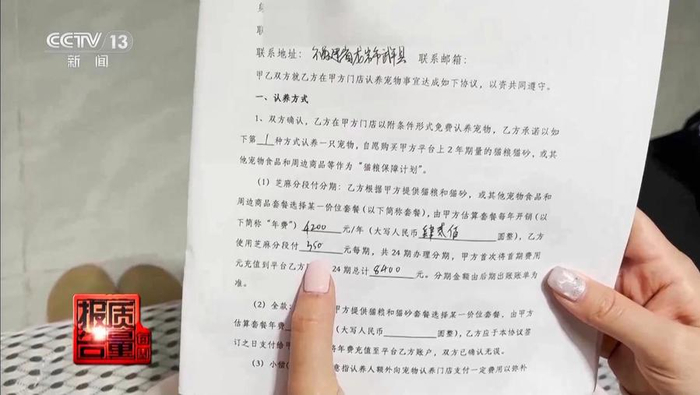 CCTV 13
新闻
联系地址：福建省龙岩市武平县 联系邮箱：
甲乙双方就乙方在甲方门店认养宠物事宜达成如下协议，以资共同遵守。
一、认养方式
1、双方确认，乙方在甲方门店以附条件形式免费认养宠物，乙方承诺以如
下第 1 种方式认养一只宠物，自愿购买甲方平台上2年期量的猫粮猫砂，或其
他宠物食品和周边商品等作为“猫粮保障计划”。
(1) 芝麻分段付分期：乙方根据甲方提供猫粮和猫砂，或其他宠物食品和
周边商品套餐选择某一价位套餐（以下简称套餐），由甲方估算套餐每年开销（以
下简称“年费”）4200 元/年（大写人民币 肆贰佰 圆整），乙方
使用芝麻分段付 350 元每期，共24期办理分期，甲方首次将首期费用
元充值到平台乙方 24期总计 8400 元。分期金额由后期出账账单为
准。
(2) 全款 甲方提供猫粮和猫砂套餐选择某一价位套餐，由甲方
估算套餐年费 （大写人民币 圆整），乙方应于本协议签
订之日支付给甲 将年费充值至平台乙方账户，双方已确认无误。
(3) 小 意指认养人额外向宠物认养门店支付一定费用以弥补
质量报告